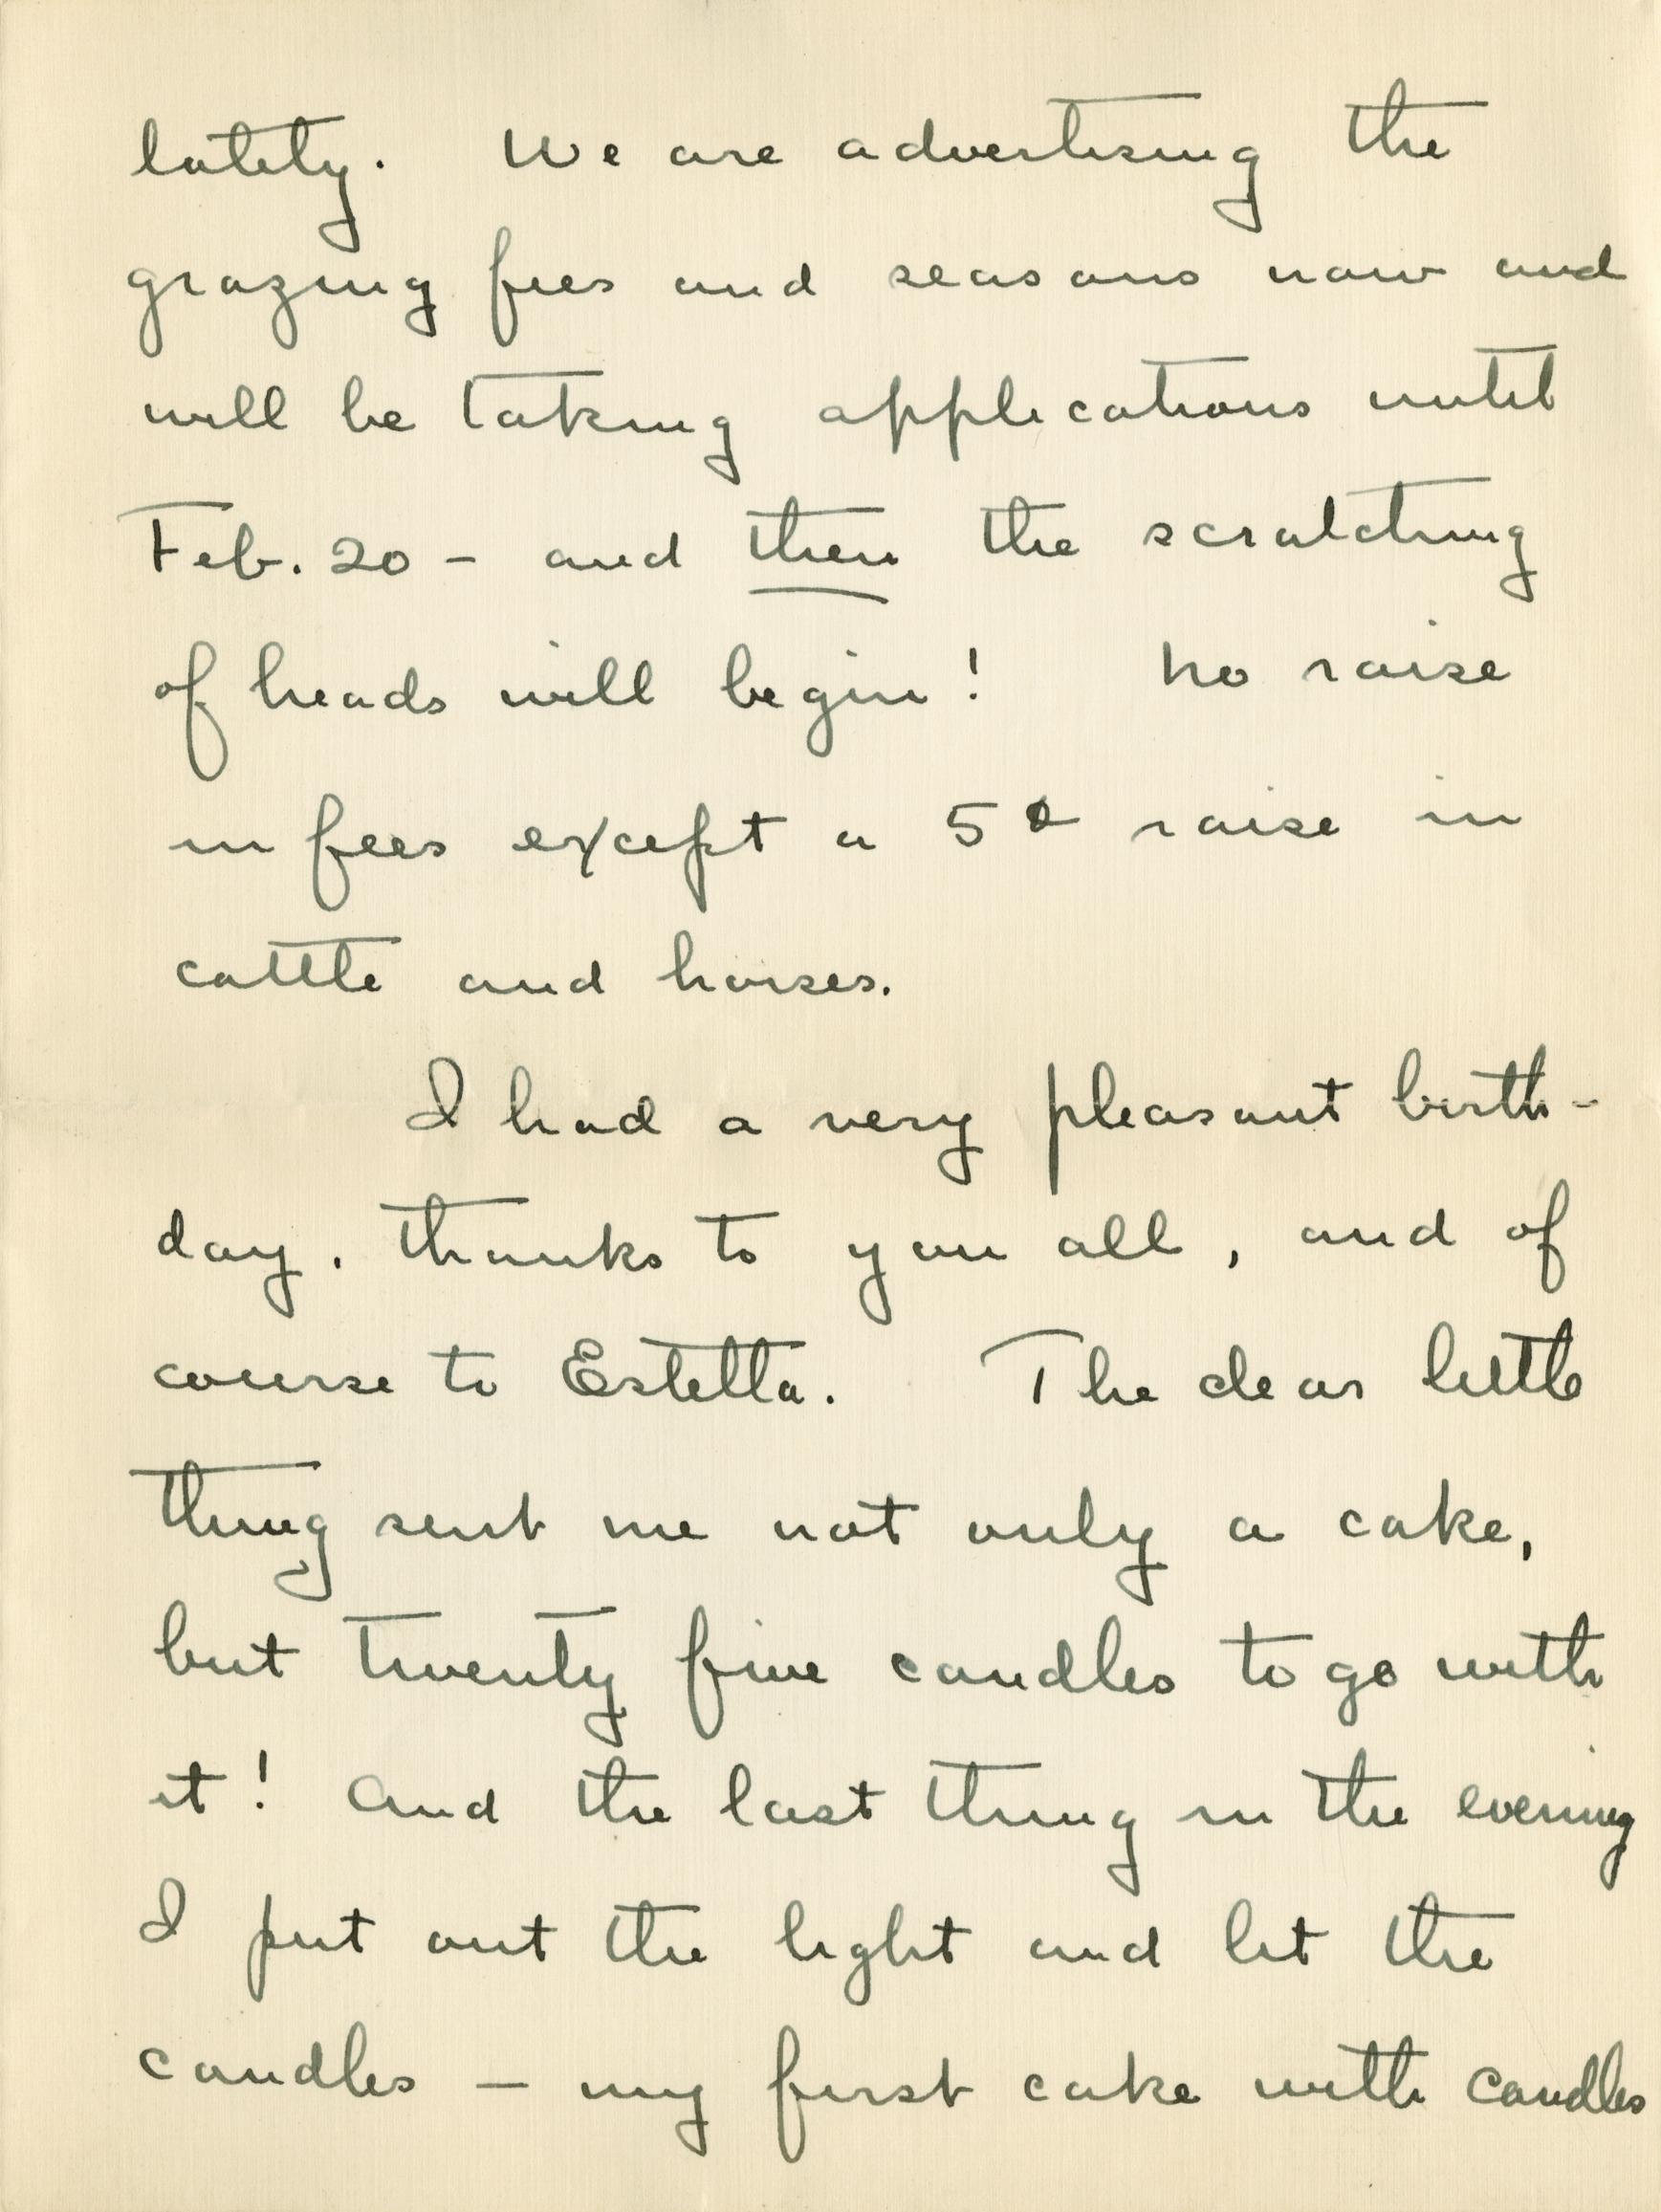 lately. We are advertising the
grazing fees and seasons now and
will be taking applications until
Feb. 20 - and then the scratching
of heads will begin! No raise
in fees except a 5¢ raise in
cattle and horses.
I had a very pleasant birth-
day, thanks to you all, and of
course to Estella. The dear little
thing sent me not only a cake,
but twenty five candles to go with
it! And the last thing in the evening
I put out the light and lit the
candles — my first cake with candles